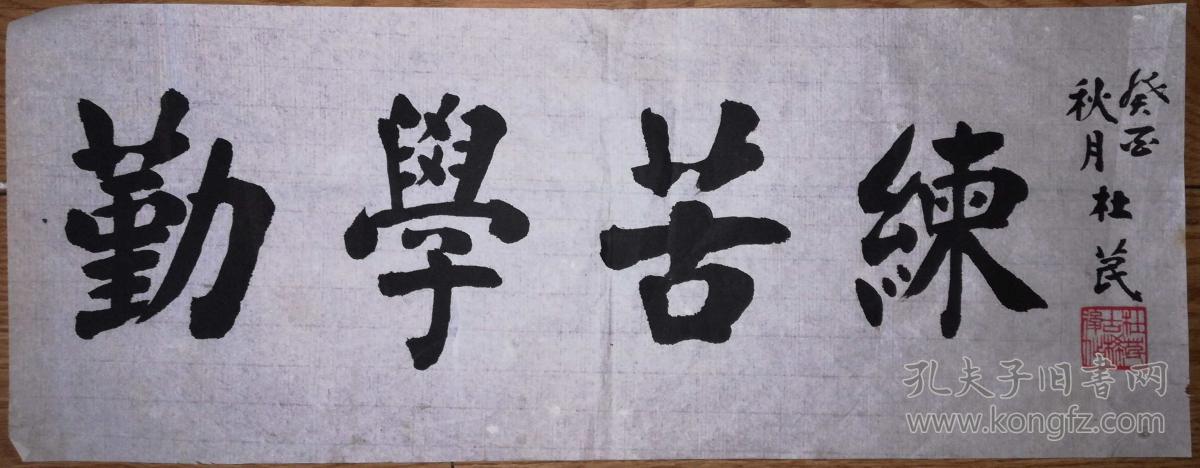 勤學苦練
癸酉
秋月杜芪
孔夫子旧书网
www.kongfz.com